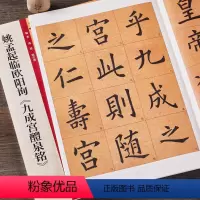 姚孟起临欧阳询《九成宫醴泉铭》
乎九成之
宫此則隨
之仁壽宫
粉象优品